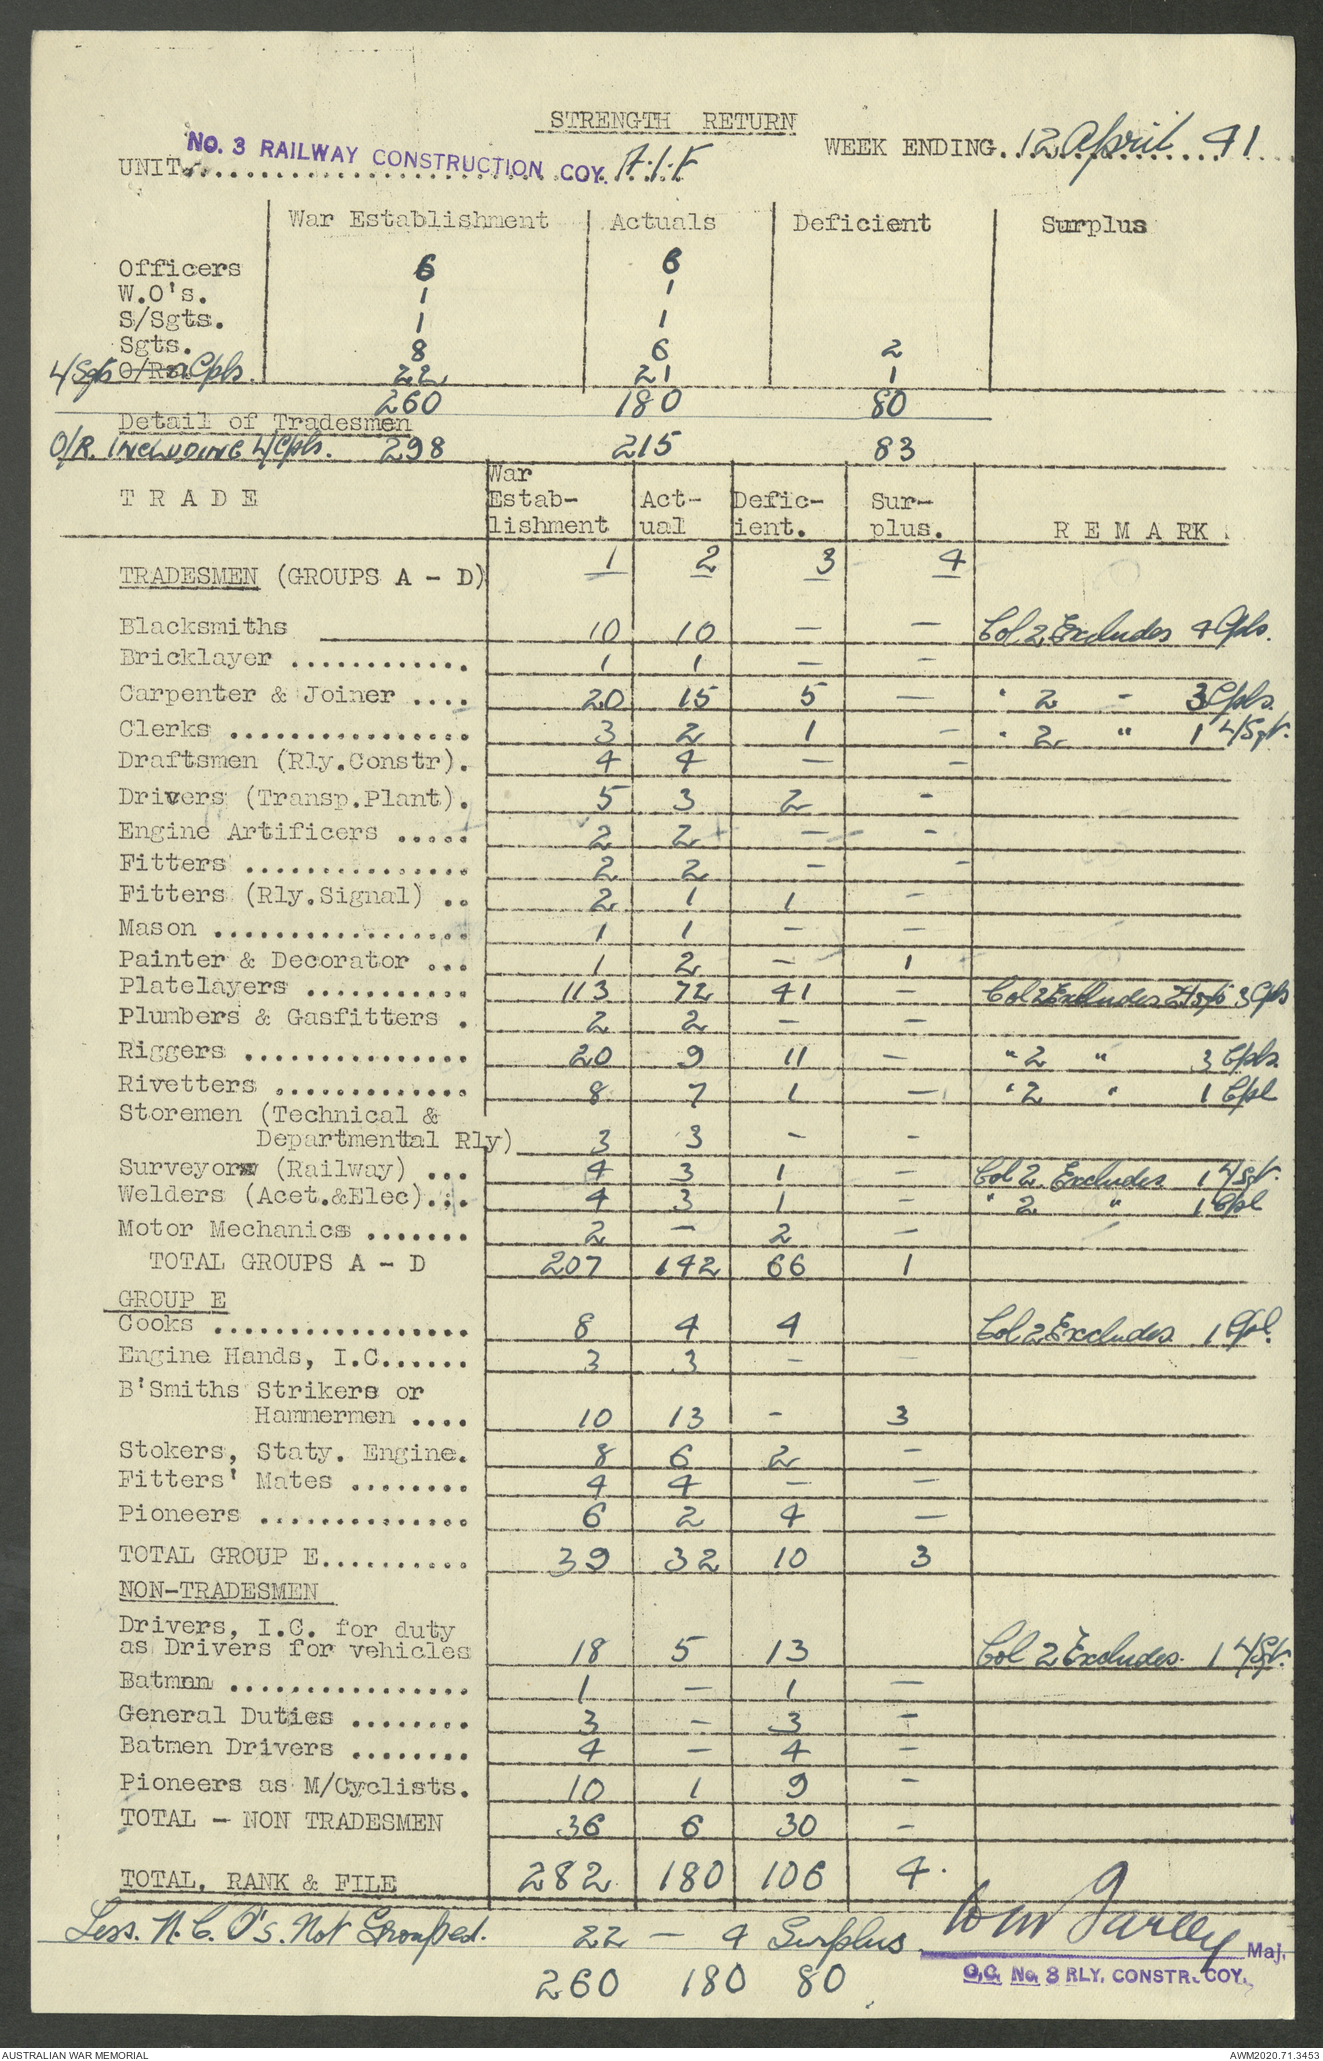 STRENGTH RETURN
UNIT NO. 3 RAILWAY CONSTRUCTION COY. A.I.F WEEK ENDING 12 April 41
War Establishment Actuals Deficient Surplus
Officers 6 6
W.O's. 1 1
S/Sgts. 1 1
Sgts. 8 6 2
L/Sgts O/Rs. Cpls. 22 21 1
260 180 80
Detail of Tradesmen
O/R. INCLUDING L/Cpls. 298 215 83
TRADE War Establishment Actual Deficient. Surplus. REMARK
1 2 3 4
TRADESMEN (GROUPS A - D)
Blacksmiths 10 10 — — Col 2 Excludes 4 Cpls.
Bricklayer ............ 1 1 — —
Carpenter & Joiner .... 20 15 5 — " 2 " 3 Cpls.
Clerks ................ 3 2 1 — " 2 " 1 L/Sgt.
Draftsmen (Rly.Constr). 4 4 — —
Drivers (Transp.Plant). 5 3 2 -
Engine Artificers ..... 2 2 — -
Fitters ............... 2 2 - -
Fitters (Rly.Signal) .. 2 1 1 -
Mason ................. 1 1 - -
Painter & Decorator ... 1 2 - 1
Platelayers ........... 113 72 41 - Col 2 Excludes 2 L/Sgts 3 Cpls
Plumbers & Gasfitters . 2 2 - -
Riggers ............... 20 9 11 - " 2 " 3 Cpls.
Rivetters ............. 8 7 1 - " 2 " 1 Cpl
Storemen (Technical &
Departmental Rly) 3 3 - -
Surveyors (Railway) ... 4 3 1 - Col 2 Excludes 1 L/Sgt.
Welders (Acet.&Elec)... 4 3 1 - " 2 " 1 Cpl
Motor Mechanics ....... 2 - 2 -
TOTAL GROUPS A - D 207 142 66 1
GROUP E
Cooks ................. 8 4 4 Col 2 Excludes 1 Cpl.
Engine Hands, I.C...... 3 3 - -
B'Smiths Strikers or
Hammermen .... 10 13 - 3
Stokers, Staty. Engine. 8 6 2 -
Fitters' Mates ........ 4 4 - -
Pioneers .............. 6 2 4 -
TOTAL GROUP E.......... 39 32 10 3
NON-TRADESMEN
Drivers, I.C. for duty
as Drivers for vehicles 18 5 13 Col 2 Excludes 1 L/Sgt.
Batman ................ 1 - 1 -
General Duties ........ 3 - 3 -
Batmen Drivers ........ 4 - 4 -
Pioneers as M/Cyclists. 10 1 9 -
TOTAL - NON TRADESMEN 36 6 30 -
TOTAL, RANK & FILE 282 180 106 4.
Less. N.C.O's. Not Grouped. 22 — 4 Surplus
Maj.
260 180 80 O.C. No. 3 RLY. CONSTR. COY.
AUSTRALIAN WAR MEMORIAL AWM2020.71.3453